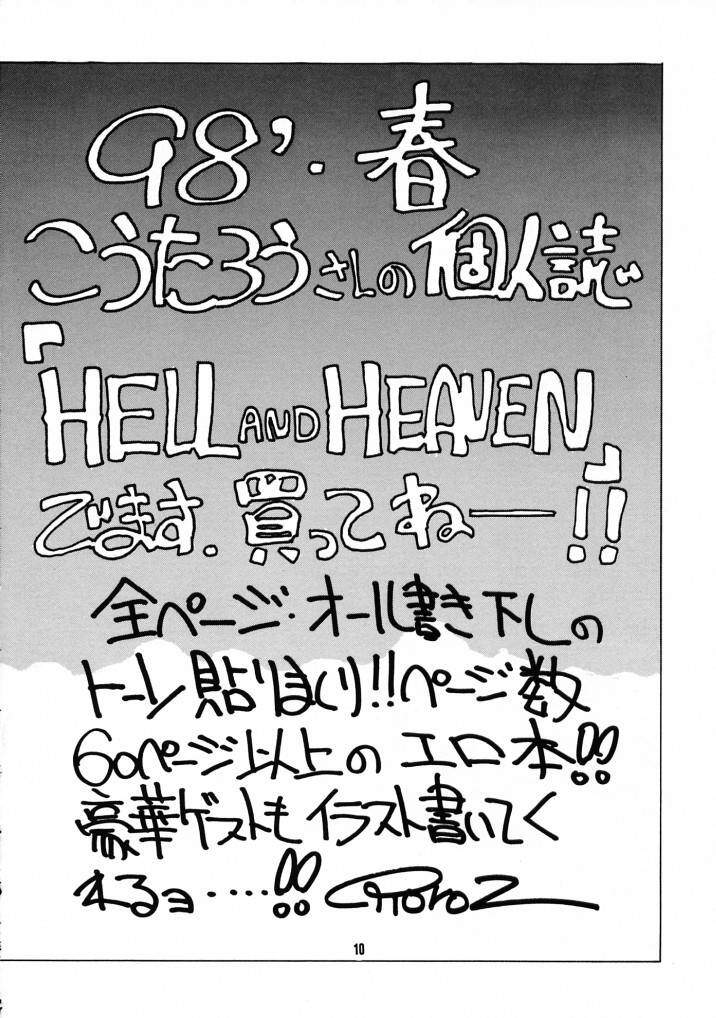 98'・春
こうたろうさんの個人誌
『HELL AND HEAVEN』
でます。買ってねー!!
全ページ・オール書き下しの
トーン貼りまくり!!ページ数
60ページ以上のエロ本!!
豪華ゲストもイラスト書いてく
れるヨ‥‥!!
10